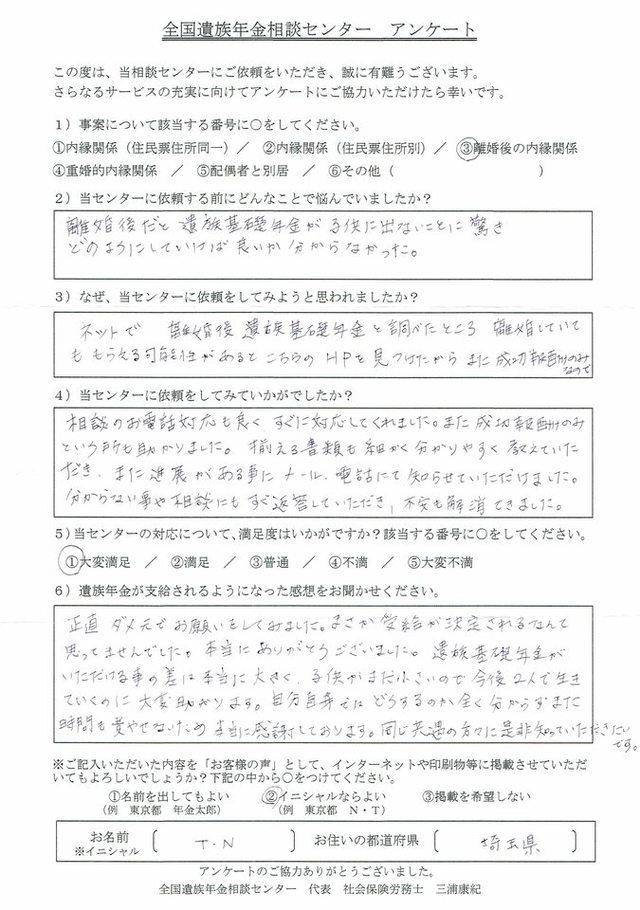 全国遺族年金相談センター　アンケート
この度は、当相談センターにご依頼をいただき、誠に有難うございます。
さらなるサービスの充実に向けてアンケートにご協力いただけたら幸いです。
1）事案について該当する番号に〇をしてください。
①内縁関係（住民票住所同一）／　②内縁関係（住民票住所別）／　③離婚後の内縁関係
④重婚的内縁関係　／　⑤配偶者と別居　／　⑥その他（　　　　　　　　）
2）当センターに依頼する前にどんなことで悩んでいましたか？
離婚後だと遺族基礎年金が子供に出ないことに驚き
どのようにしていけば良いか分からなかった。
3）なぜ、当センターに依頼をしてみようと思われましたか？
ネットで　離婚後 遺族基礎年金と調べたところ 離婚していて
も もらえる可能性があるとこちらのHPを見つけたから また成功報酬のみ
なので
4）当センターに依頼をしてみていかがでしたか？
相談のお電話対応も良く すぐに対応してくれました。また成功報酬のみ
という所も助かりました。 揃える書類も細かく分かりやすく 教えていた
だき、また進展がある事にメール、電話にて知らせていただけました。
分からない事や相談にもすぐ返答していただき、不安も解消できました。
5）当センターの対応について、満足度はいかがですか？該当する番号に〇をしてください。
①大変満足　／　②満足　／　③普通　／　④不満　／　⑤大変不満
6）遺族年金が支給されるようになった感想をお聞かせください。
正直 ダメ元でお願いをしてみました。まさか受給が決定されるなんて
思ってませんでした。本当にありがとうございました。 遺族基礎年金が
いただける事の差は本当に大きく、子供がまだ小さいので今後2人で生き
ていくのに大変助かります。自分自身ではどうするのか全く分からずまた
時間も費やせないため 本当に感謝しております。同じ境遇の方々に是非知っていただきたい
です。
※ご記入いただいた内容を「お客様の声」として、インターネットや印刷物等に掲載させていただ
いてもよろしいでしょうか？下記の中から〇をつけてください。
①名前を出してもよい　②イニシャルならよい　③掲載を希望しない
（例　東京都　年金太郎）　（例　東京都　N・T）
お名前　〔　T.N　〕　お住いの都道府県　〔　埼玉県　〕
※イニシャル
アンケートのご協力ありがとうございました。
全国遺族年金相談センター　代表　社会保険労務士　三浦康紀